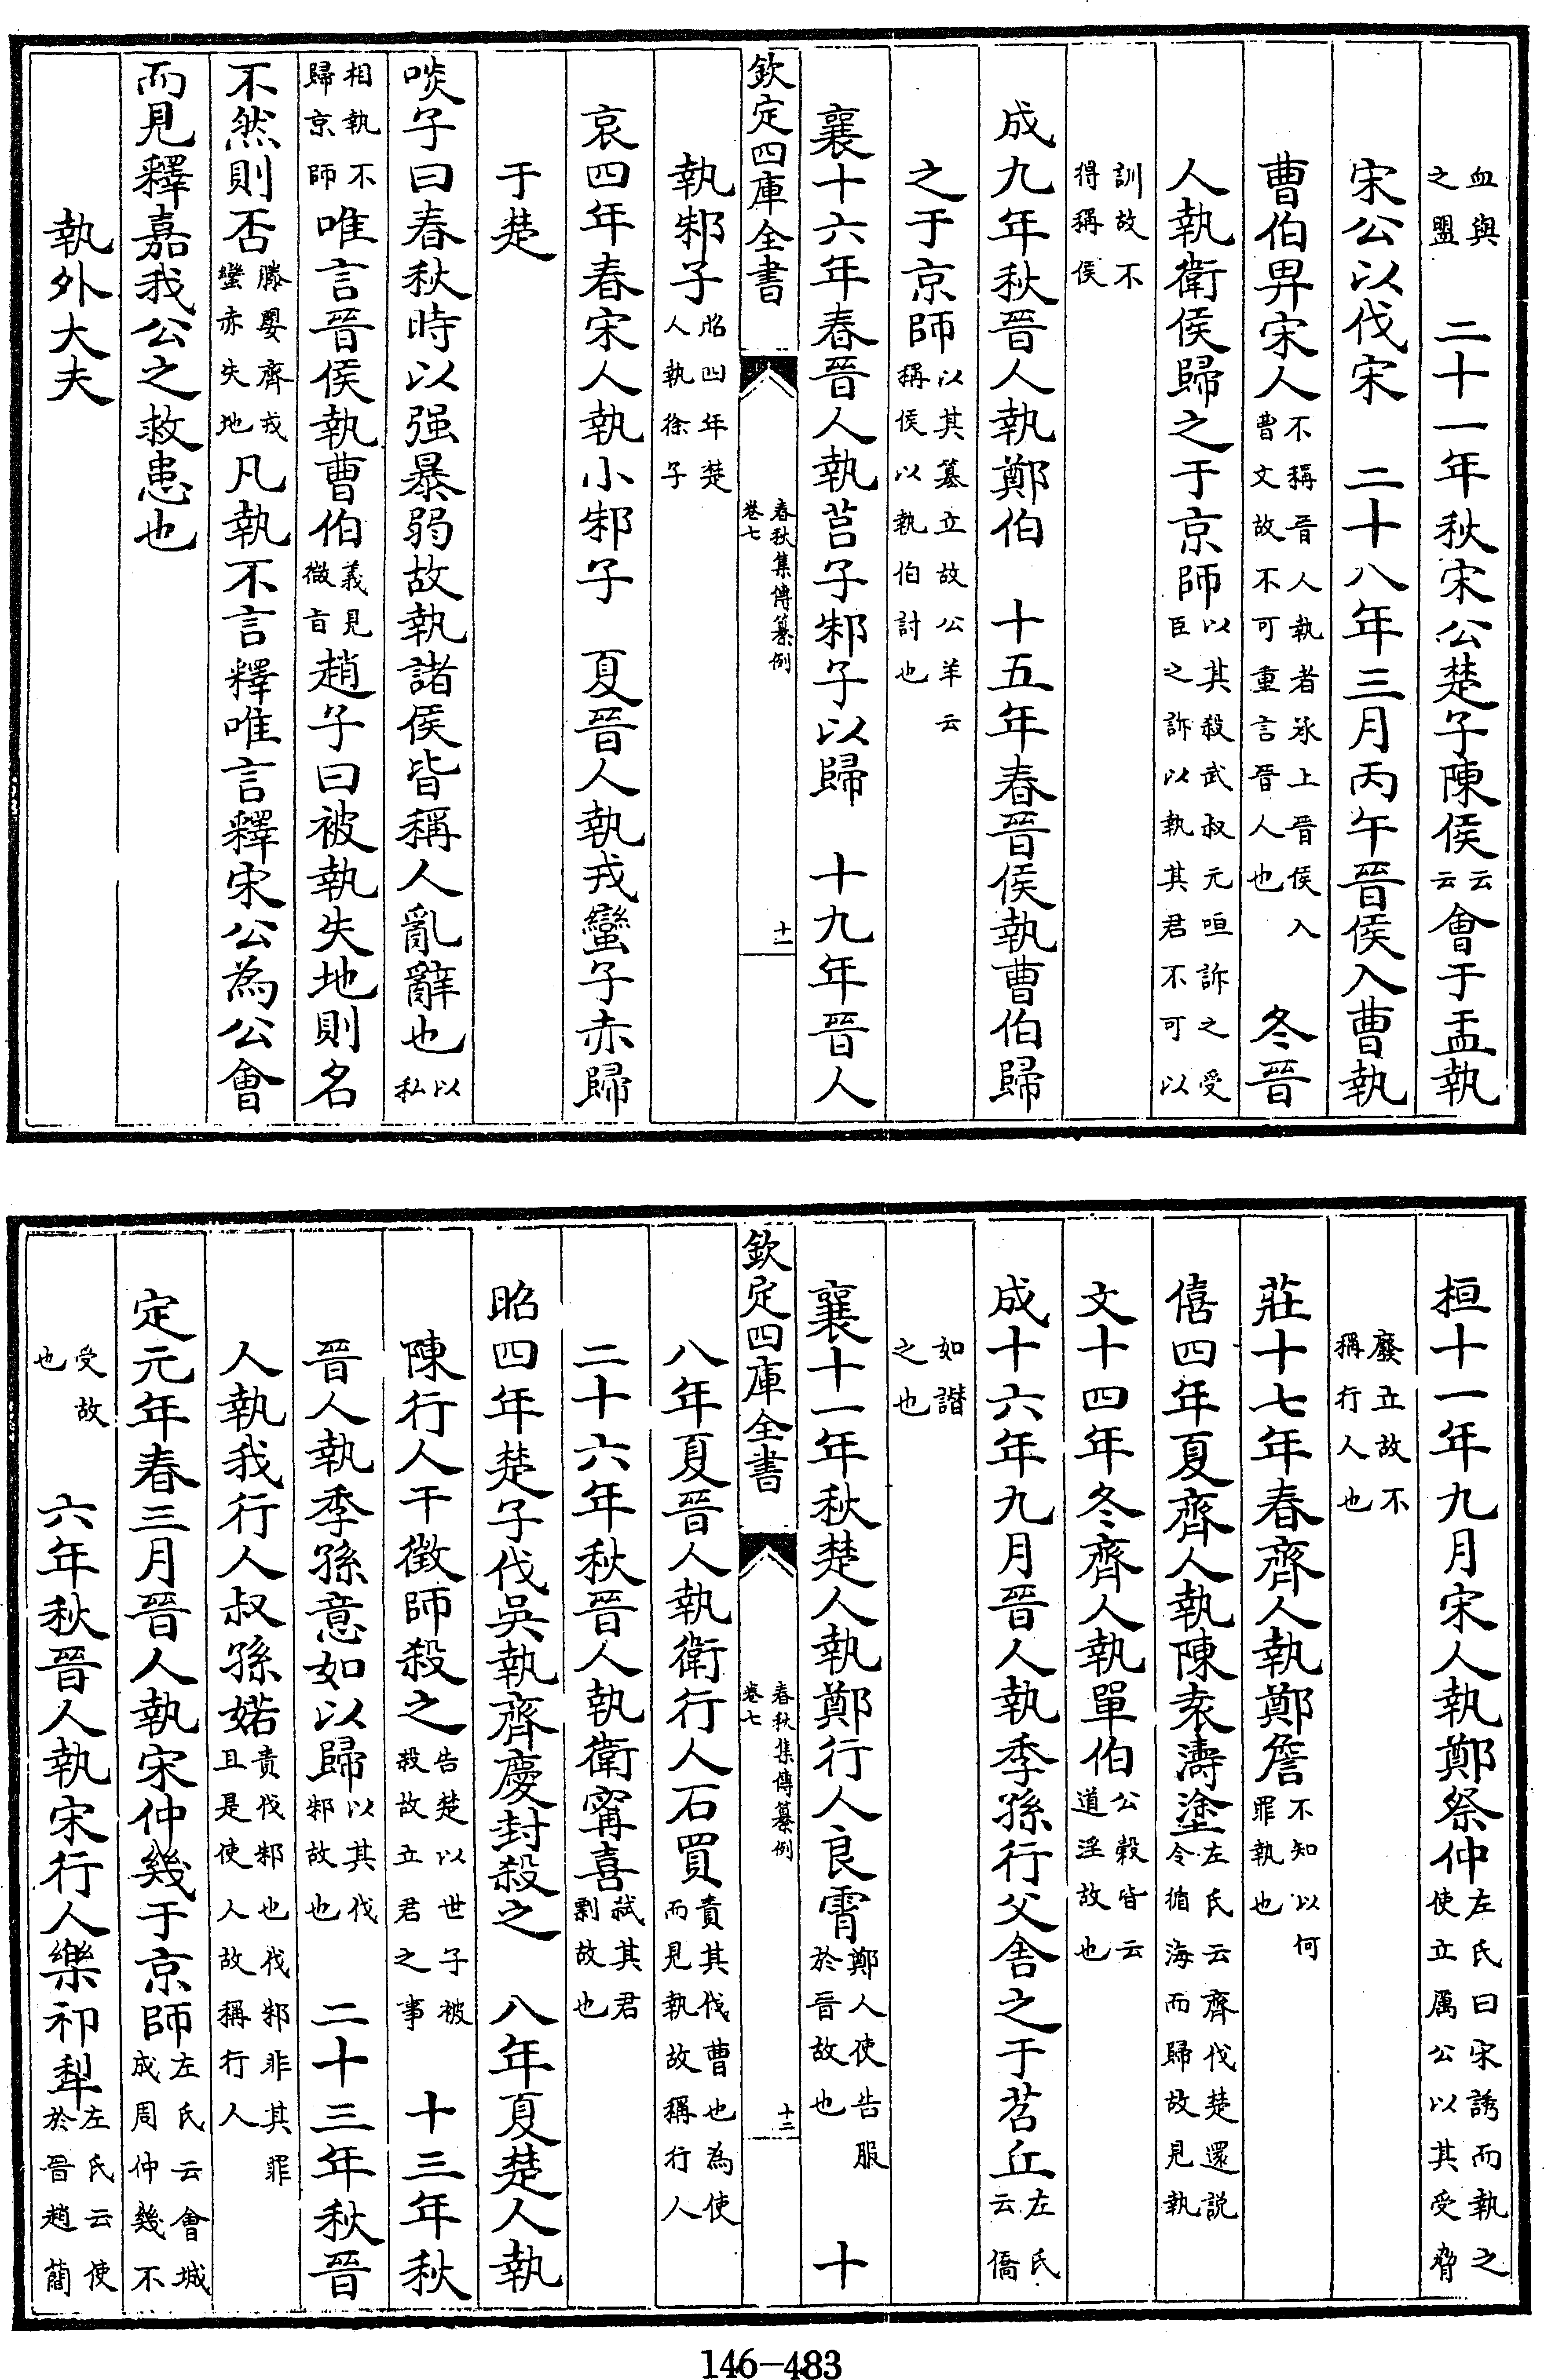 血與之盟　二十一年秋宋公楚子陳侯云云會于盂執
宋公以伐宋　二十八年三月丙午晉侯入曹執
曹伯畀宋人不稱晉人執者承上晉侯入曹文故不可重言晉人也　冬晉
人執衛侯歸之于京師以其殺武叔元咺訴之受臣之訴以執其君不可以
訓故不得稱侯
成九年秋晉人執鄭伯　十五年春晉侯執曹伯歸
之于京師以其簒立故公羊云稱侯以執伯討也
襄十六年春晉人執莒子邾子以歸　十九年晉人
欽定四庫全書　春秋集傳纂例卷七　十一
執邾子昭四年楚人執徐子
哀四年春宋人執小邾子　夏晉人執戎蠻子赤歸
于楚
啖子曰春秋時以强暴弱故執諸侯皆稱人亂辭也以私
相執不歸京師唯言晉侯執曹伯義見微旨趙子曰被執失地則名
不然則否滕嬰齊戎蠻赤失地凡執不言釋唯言釋宋公為公會
而見釋嘉我公之救患也
執外大夫
桓十一年九月宋人執鄭祭仲左氏曰宋誘而執之使立厲公以其受脅
廢立故不稱行人也
莊十七年春齊人執鄭詹不知以何罪執也
僖四年夏齊人執陳袁濤塗左氏云齊伐楚還説令循海而歸故見執
文十四年冬齊人執單伯公穀皆云道淫故也
成十六年九月晉人執季孫行父舍之于苕丘左氏云僑
如譖之也
襄十一年秋楚人執鄭行人良霄鄭人使告服於晉故也　十
欽定四庫全書　春秋集傳纂例卷七　十二
八年夏晉人執衛行人石買責其伐曹也為使而見執故稱行人
二十六年秋晉人執衛甯喜弑其君剽故也
昭四年楚子伐吳執齊慶封殺之　八年夏楚人執
陳行人干徵師殺之告楚以世子被殺故立君之事　十三年秋
晉人執季孫意如以歸以其伐邾故也　二十三年秋晉
人執我行人叔孫婼責伐邾也伐邾非其罪且是使人故稱行人
定元年春三月晉人執宋仲幾于京師左氏云會城成周仲幾不
受故也　六年秋晉人執宋行人樂祁犁左氏云使於晉趙蕳
146-483